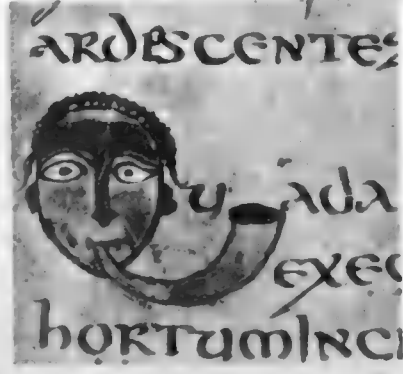 ARDESCENTES
QU ADA
EXEC
hORTUMINC